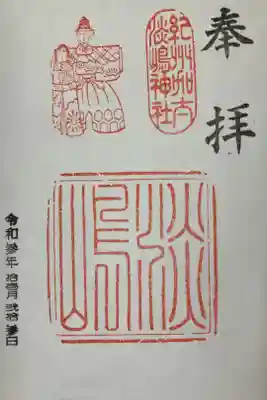 奉拝
紀州加太
淡嶋神社
淡嶋
令和参年拾壹月弐拾参日